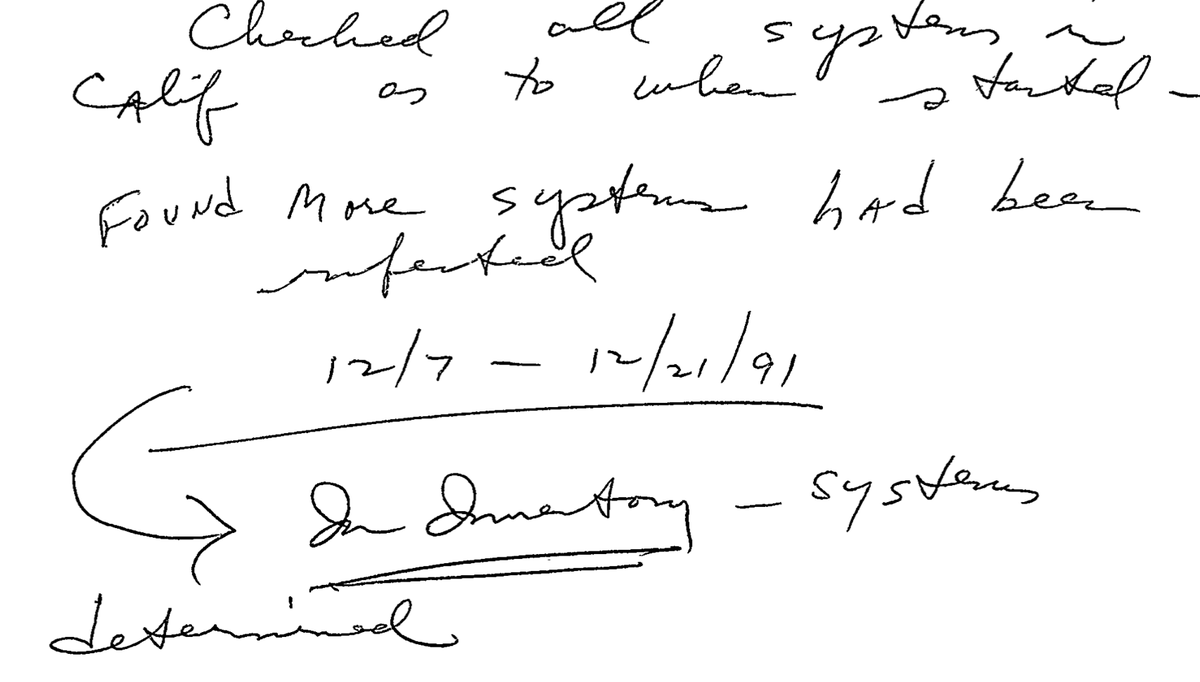 Checked all systems in
Calif as to when started -
Found more systems had been
infected
12/7 - 12/21/91
In Inventory - systems
determined